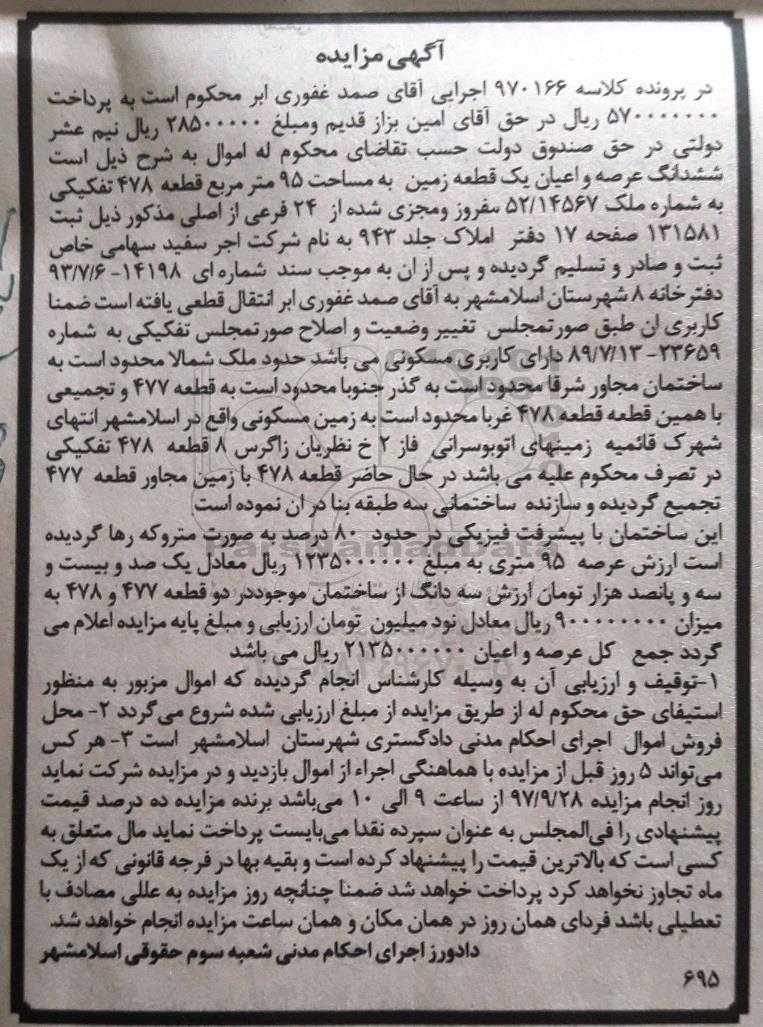 آگهی مزایده
در پرونده کلاسه ۹۷۰۱۶۶ اجرایی آقای صمد غفوری ابر محکوم است به پرداخت
۵۷۰۰۰۰۰۰۰ ریال در حق آقای امین بزاز قدیم ومبلغ ۲۸۵۰۰۰۰۰ ریال نیم عشر
دولتی در حق صندوق دولت حسب تقاضای محکوم له اموال به شرح ذیل است
ششدانگ عرصه و اعیان یک قطعه زمین به مساحت ۹۵ متر مربع قطعه ۴۷۸ تفکیکی
به شماره ملک ۵۲/۱۴۵۶۷ مفروز ومجزی شده از ۲۴ فرعی از اصلی مذکور ذیل ثبت
۱۳۱۵۸۱ صفحه ۱۷ دفتر املاک جلد ۹۴۳ به نام شرکت اجر سفید سهامی خاص
ثبت و صادر و تسلیم گردیده و پس از ان به موجب سند شماره ای ۱۴۱۹۸- ۹۳/۷/۶
دفترخانه ۸ شهرستان اسلامشهر به آقای صمد غفوری ابر انتقال قطعی یافته است ضمنا
کاربری ان طبق صورتمجلس تغییر وضعیت و اصلاح صورتمجلس تفکیکی به شماره
۲۳۶۵۹- ۸۹/۷/۱۳ دارای کاربری مسکونی می باشد حدود ملک شمالا محدود است به
ساختمان مجاور شرقا محدود است به گذر جنوبا محدود است به قطعه ۴۷۷ و تجمیعی
با همین قطعه قطعه ۴۷۸ غربا محدود است به زمین مسکونی واقع در اسلامشهر انتهای
شهرک قائمیه زمینهای اتوبوسرانی فاز ۲ خ نظریان زاگرس ۸ قطعه ۴۷۸ تفکیکی
در تصرف محکوم علیه می باشد در حال حاضر قطعه ۴۷۸ با زمین مجاور قطعه ۴۷۷
تجمیع گردیده و سازنده ساختمانی سه طبقه بنا در ان نموده است
این ساختمان با پیشرفت فیزیکی در حدود ۸۰ درصد به صورت متروکه رها گردیده
است ارزش عرصه ۹۵ متری به مبلغ ۱۲۳۵۰۰۰۰۰۰ ریال معادل یک صد و بیست و
سه و پانصد هزار تومان ارزش سه دانگ از ساختمان موجوددر دو قطعه ۴۷۷ و ۴۷۸ به
میزان ۹۰۰۰۰۰۰۰۰ ریال معادل نود میلیون تومان ارزیابی و مبلغ پایه مزایده اعلام می
گردد جمع کل عرصه و اعیان ۲۱۳۵۰۰۰۰۰۰ ریال می باشد
۱-توقیف و ارزیابی آن به وسیله کارشناس انجام گردیده که اموال مزبور به منظور
استیفای حق محکوم له از طریق مزایده از مبلغ ارزیابی شده شروع می‌گردد ۲- محل
فروش اموال اجرای احکام مدنی دادگستری شهرستان اسلامشهر است ۳- هر کس
می‌تواند ۵ روز قبل از مزایده با هماهنگی اجراء از اموال بازدید و در مزایده شرکت نماید
روز انجام مزایده ۹۷/۹/۲۸ از ساعت ۹ الی ۱۰ می‌باشد برنده مزایده ده درصد قیمت
پیشنهادی را فی‌المجلس به عنوان سپرده نقدا می‌بایست پرداخت نماید مال متعلق به
کسی است که بالاترین قیمت را پیشنهاد کرده است و بقیه بها در فرجه قانونی که از یک
ماه تجاوز نخواهد کرد پرداخت خواهد شد ضمنا چنانچه روز مزایده به عللی مصادف با
تعطیلی باشد فردای همان روز در همان مکان و همان ساعت مزایده انجام خواهد شد.
دادورز اجرای احکام مدنی شعبه سوم حقوقی اسلامشهر
۶۹۵